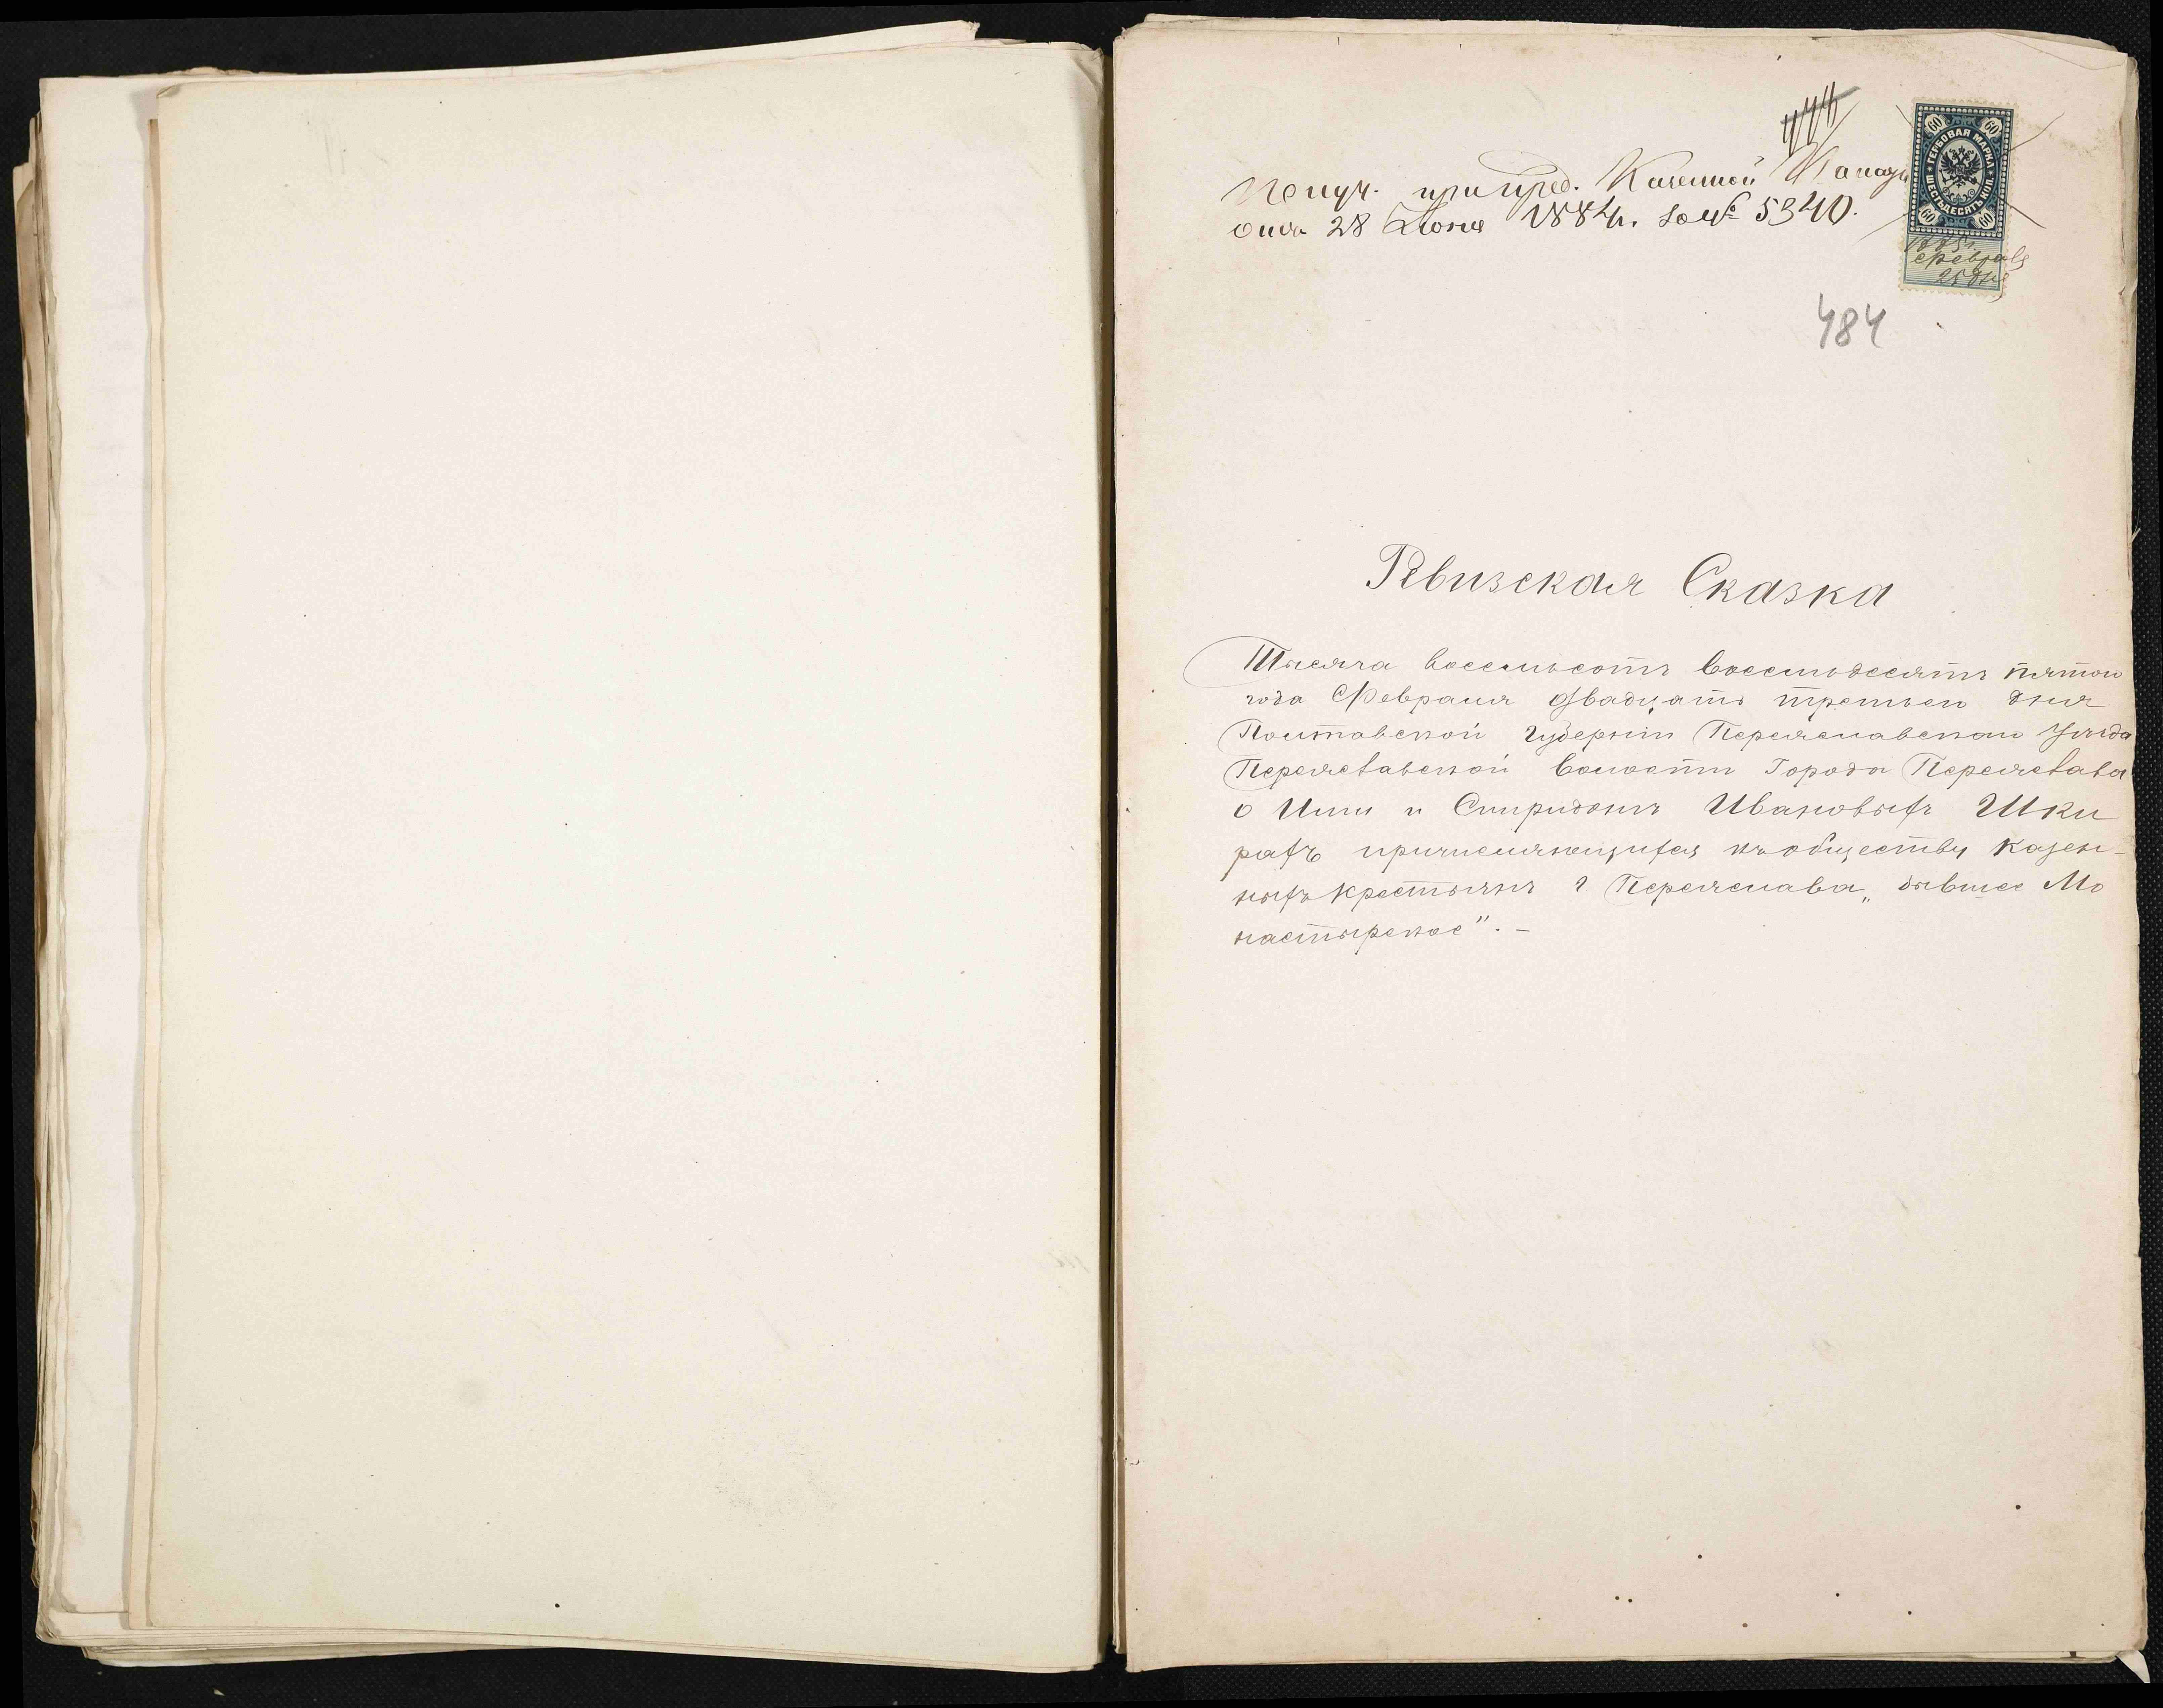 Получ. при пред. Казенной Палаты
отъ 28 Июня 1884 г. за № 5340.
ГЕРБОВАЯ МАРКА
ШЕСТЬДЕСЯТЪ КОП.
60 60 60 60
1885 г.
Февраля
25 дня
484
Ревизская Сказка
Тысяча восемьсотъ восемьдесятъ пятого
года Февраля двадцать третьего дня
Полтавской Губерніи Переяславскаго Уѣзда
Переяславской волости Города Переяслава
о Ильи и Спиридонъ Ивановыхъ Шки
рахъ причисляющихся къ обществу казен-
ныхъ крестьянъ г Переяслава „бывшее Мо
настырское". -